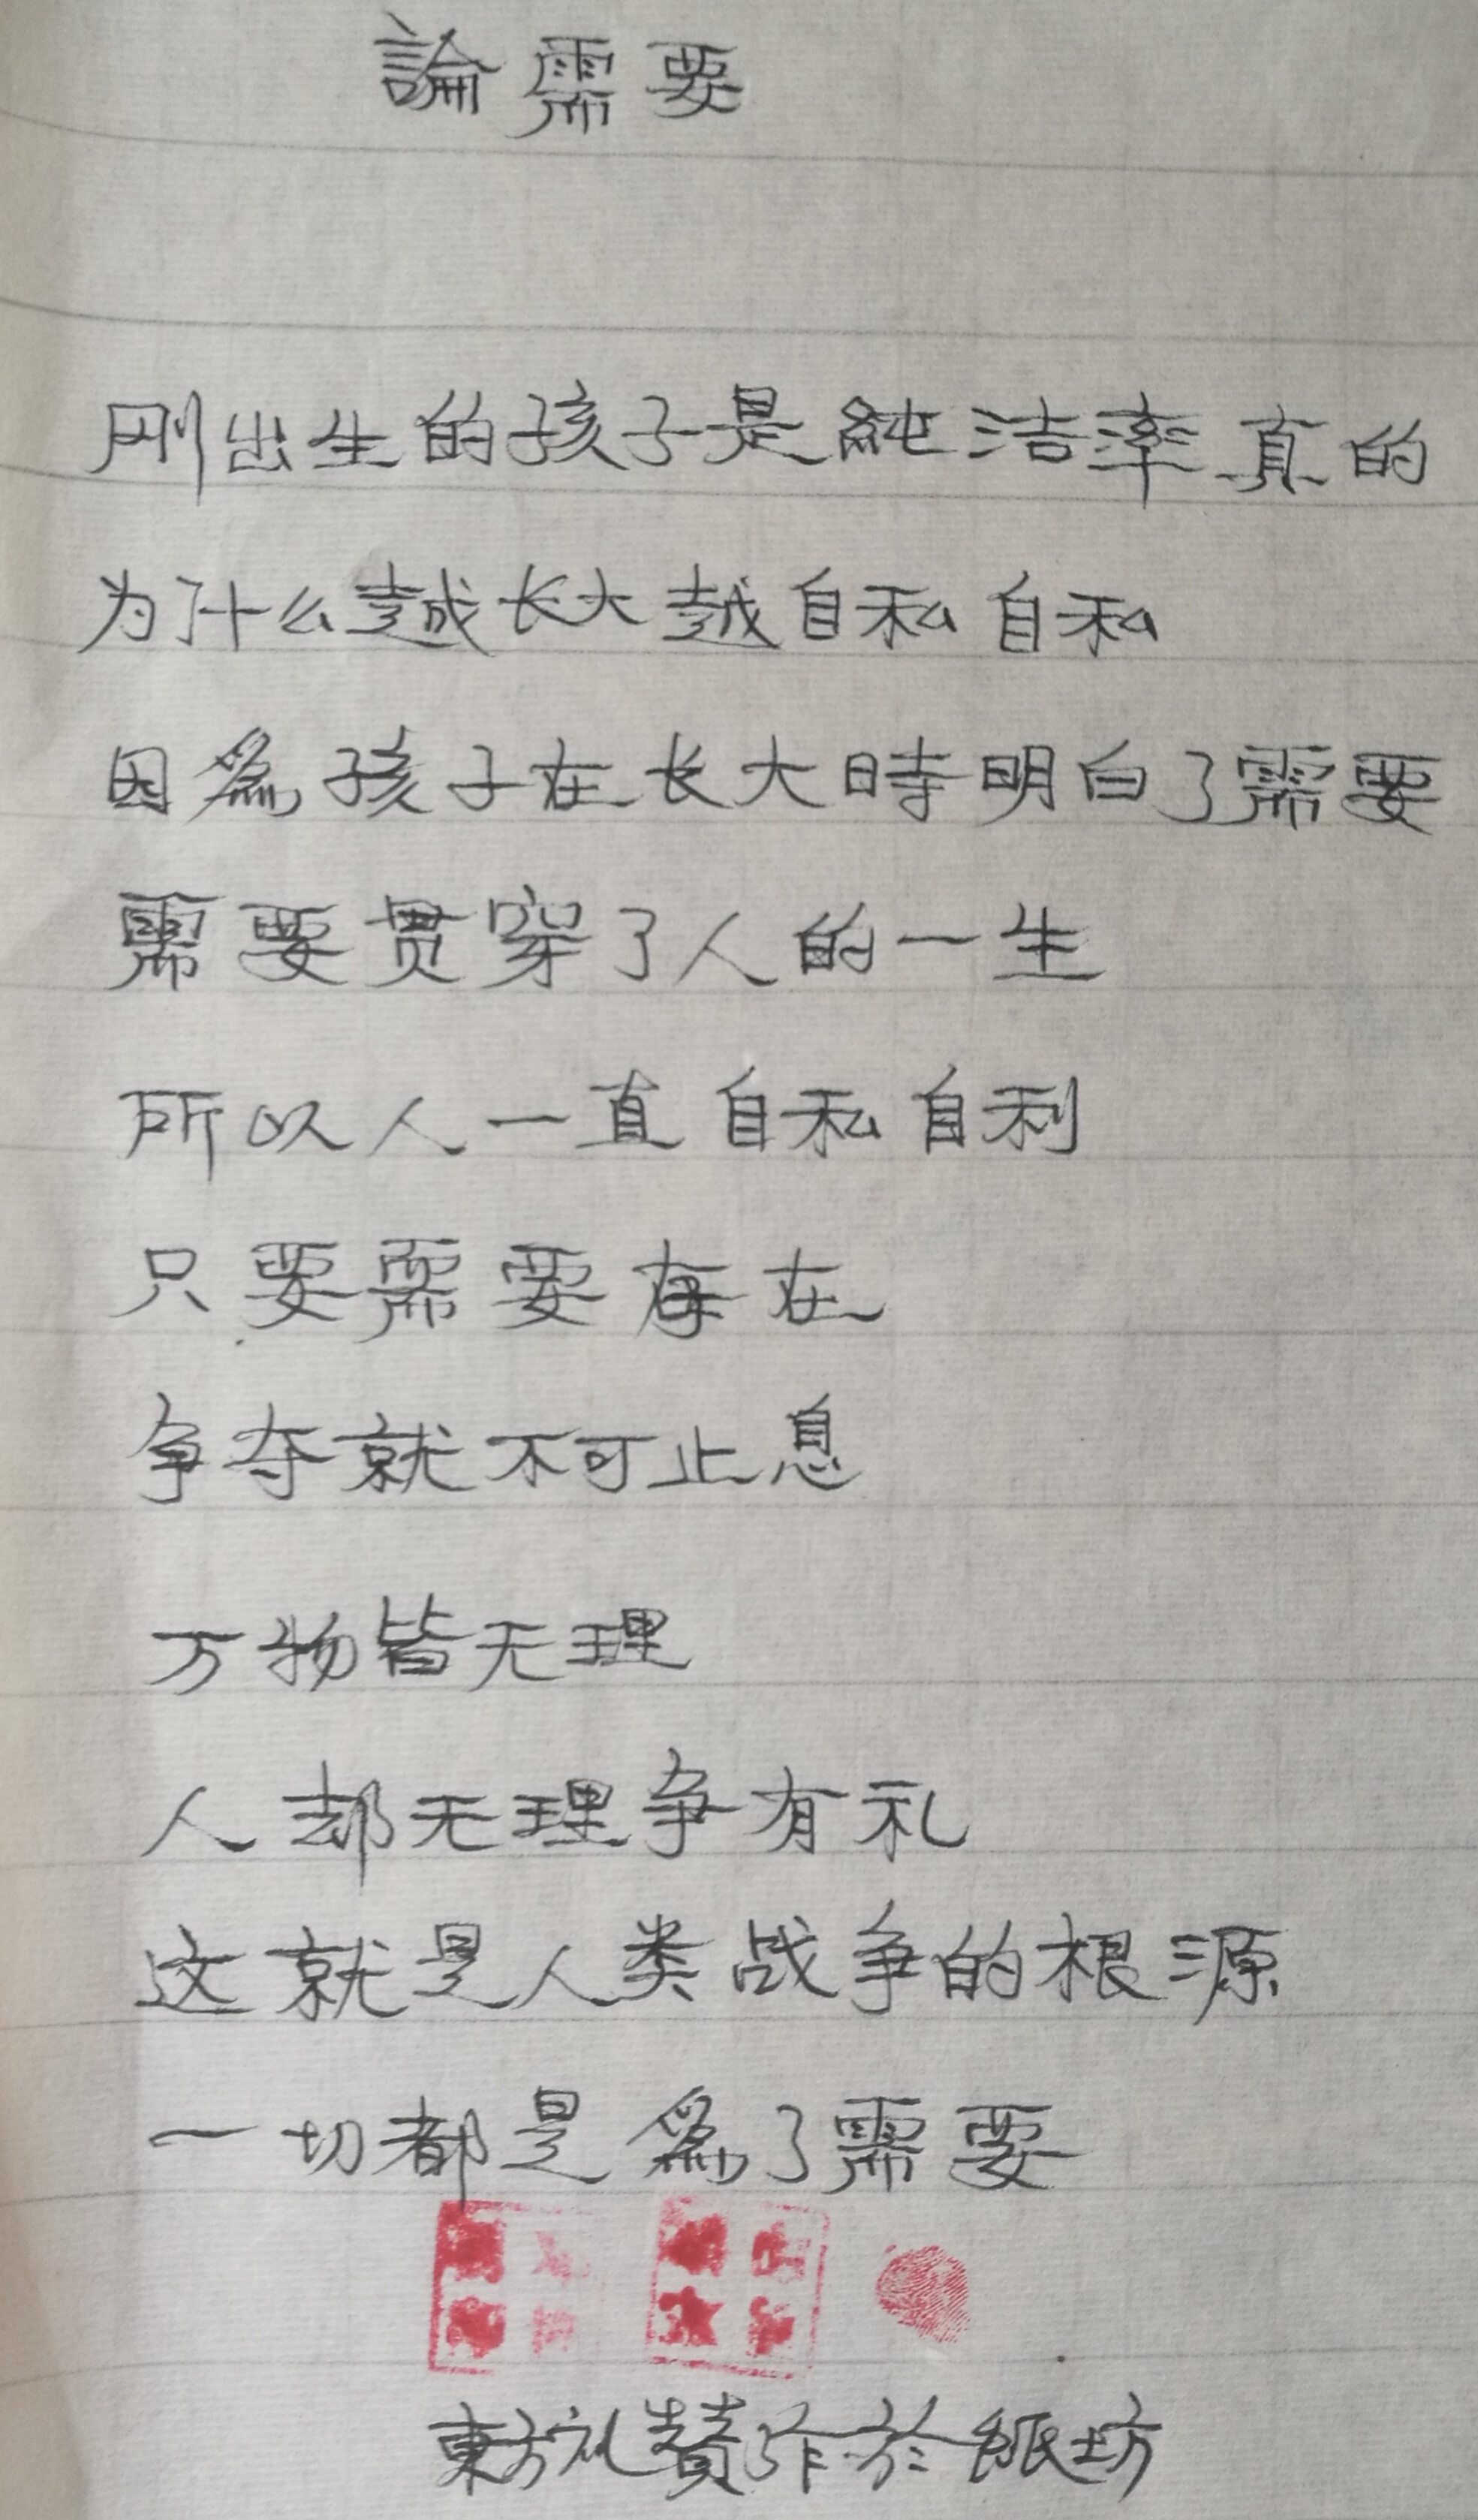 論需要
刚出生的孩子是純洁率真的
为什么越长大越自私自私
因為孩子在长大時明白了需要
需要贯穿了人的一生
所以人一直自私自利
只要需要存在
争夺就不可止息
万物皆无理
人却无理争有礼
这就是人类战争的根源
一切都是為了需要
東方礼赞作於紙坊